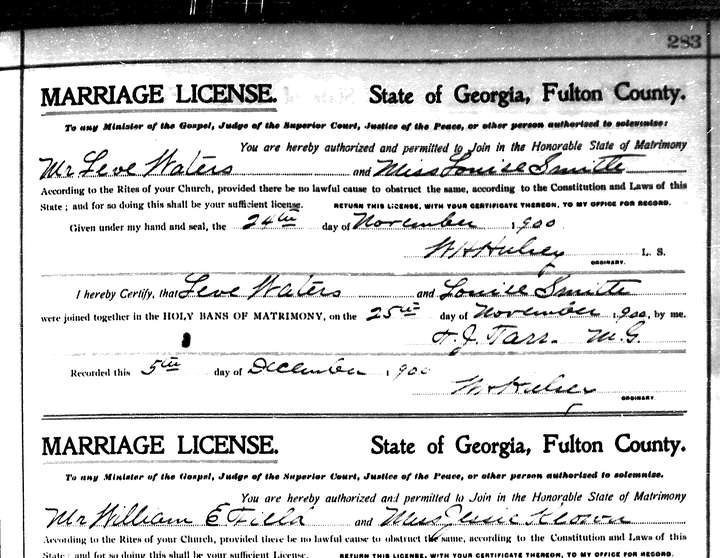 283
MARRIAGE LICENSE. State of Georgia, Fulton County.
To any Minister of the Gospel, Judge of the Superior Court, Justice of the Peace, or other person authorized to solemnize:
You are hereby authorized and permitted to Join in the Honorable State of Matrimony
Mr Leve Waters and Miss Louise Smith
According to the Rites of your Church, provided there be no lawful cause to obstruct the same, according to the Constitution and Laws of this
State; and for so doing this shall be your sufficient license. RETURN THIS LICENSE, WITH YOUR CERTIFICATE THEREON, TO MY OFFICE FOR RECORD.
Given under my hand and seal, the 24th day of November 1900
W H Hulsey L. S.
ORDINARY.
I hereby Certify, that Leve Waters and Louise Smith
were joined together in the HOLY BANS OF MATRIMONY, on the 25th day of November 1900, by me.
J. Tarr M.G.
Recorded this 5th day of December 1900
W H Hulsey
ORDINARY.
MARRIAGE LICENSE. State of Georgia, Fulton County.
To any Minister of the Gospel, Judge of the Superior Court, Justice of the Peace, or other person authorized to solemnize.
You are hereby authorized and permitted to Join in the Honorable State of Matrimony
Mr William E and
According to the Rites of your Church, provided there be no lawful cause to obstruct the same, according to the Constitution and Laws of this
State; and for so doing this shall be your sufficient License. RETURN THIS LICENSE, WITH YOUR CERTIFICATE THEREON, TO MY OFFICE FOR RECORD.